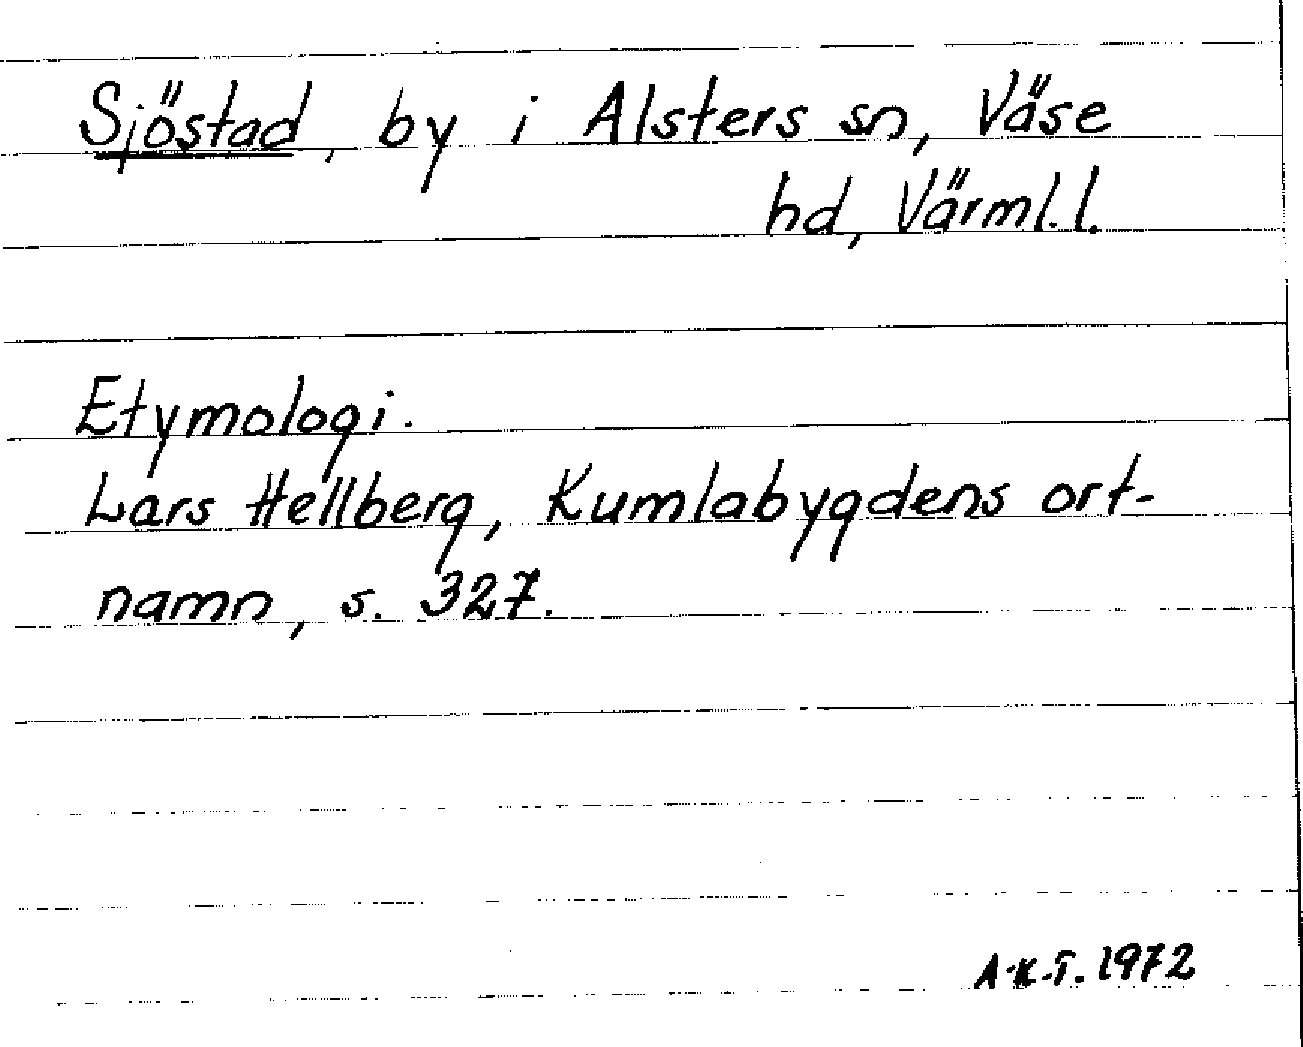 Sjöstad, by i Alsters sn, Väse
hd, Värml.l.
Etymologi.
Lars Hellberg, Kumlabygdens ort-
namn, s. 327.
A-K.T. 1972